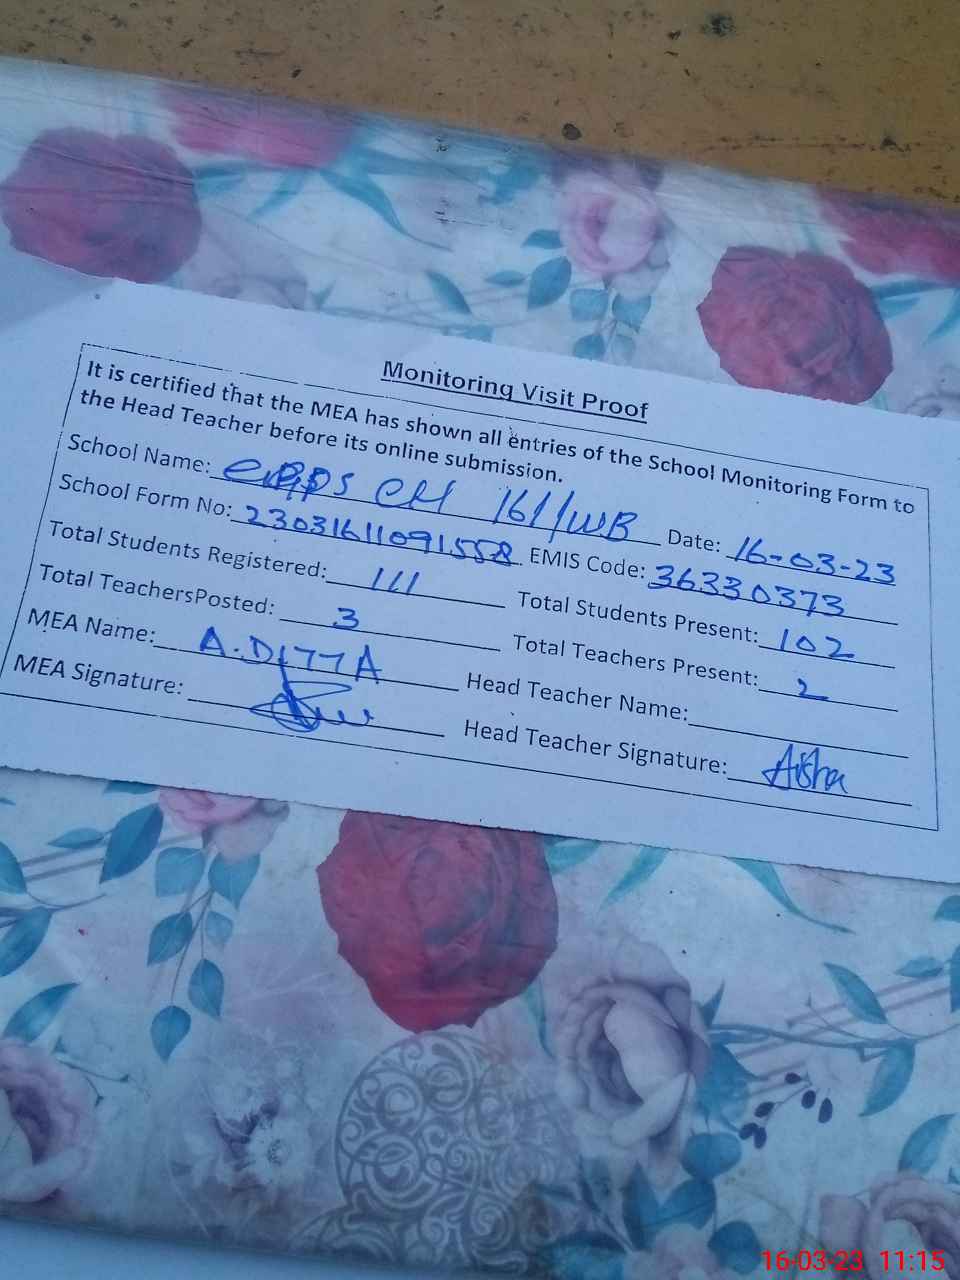 Monitoring Visit Proof
It is certified that the MEA has shown all entries of the School Monitoring Form to
the Head Teacher before its online submission.
School Name: CH 161/WB Date: 16-03-23
School Form No: 23031611091558 EMIS Code: 36330373
Total Students Registered: 111 Total Students Present: 102
Total TeachersPosted: 3 Total Teachers Present: 2
MEA Name: A.DITTA Head Teacher Name:
MEA Signature: Head Teacher Signature: Aisha
16-03-23 11:15